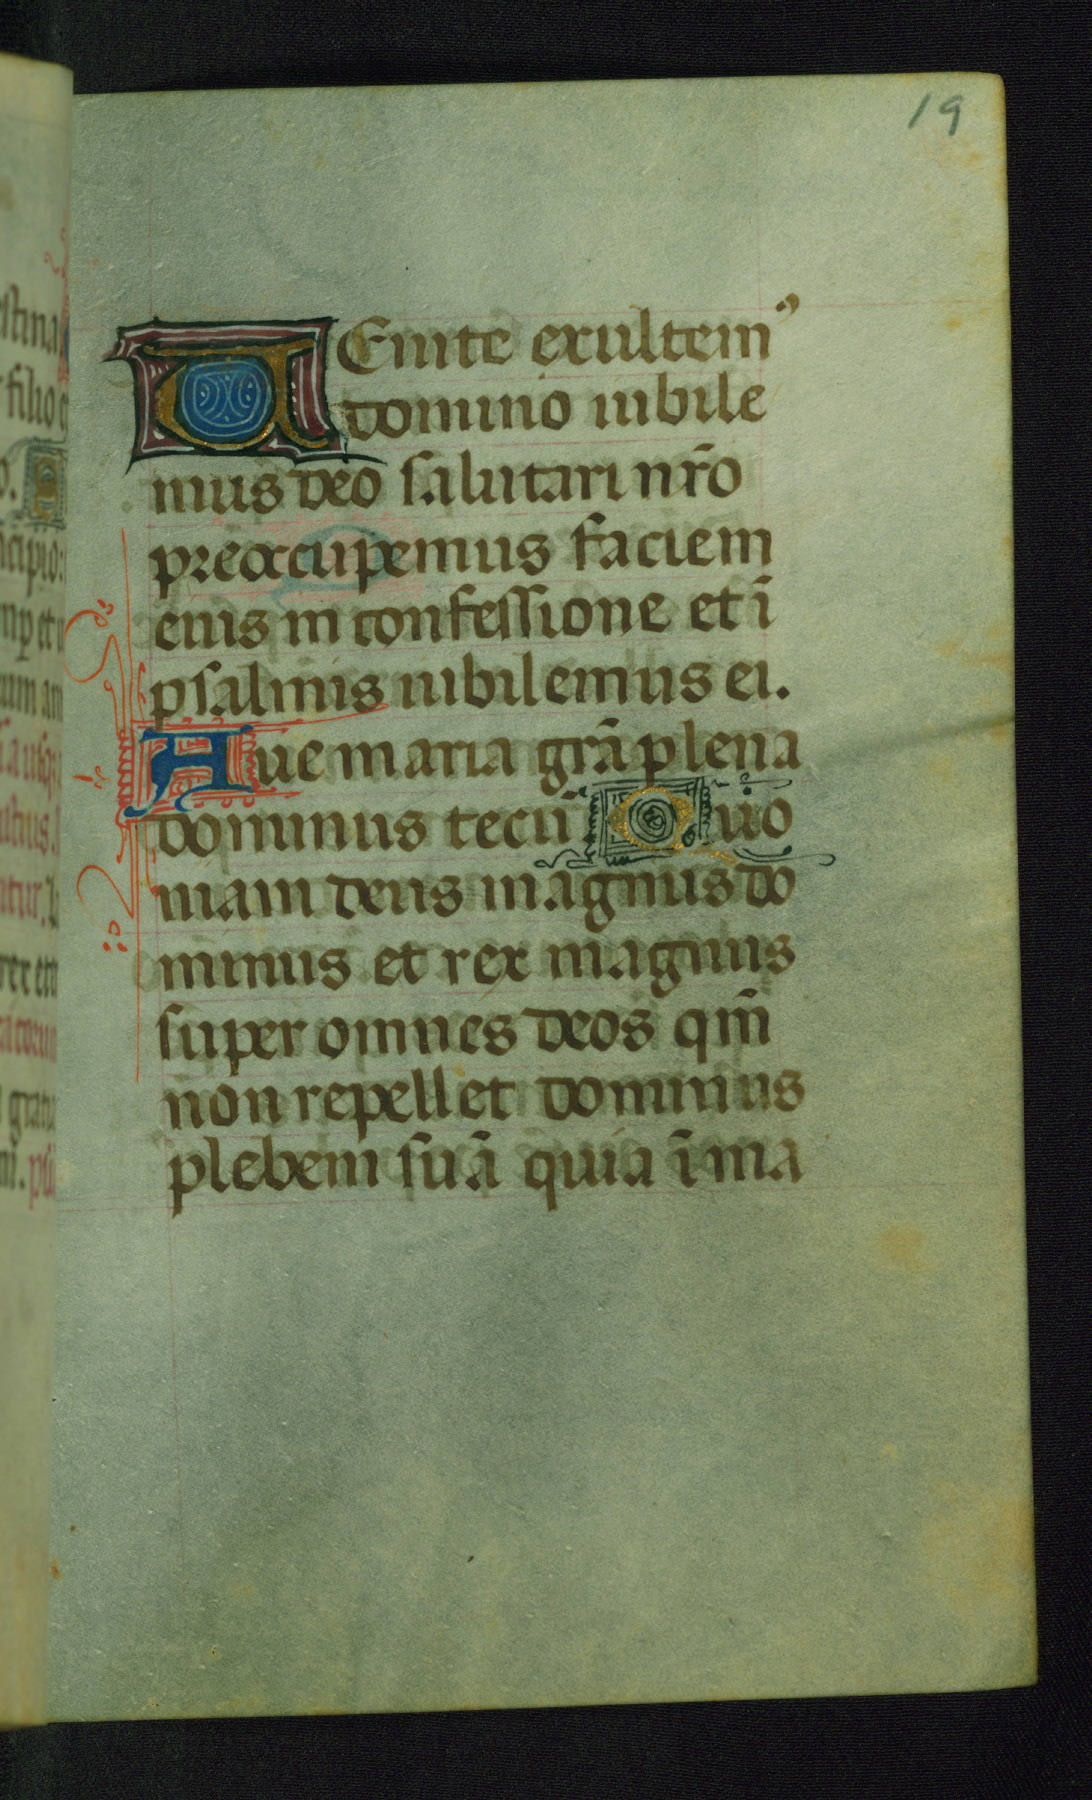 19
UEnite exultemꝰ
domino iubile
mus deo salutari nr̃o
preoccupemus faciem
eius in confessione et ĩ
psalmis iubilemus ei.
Aue maria grã plena
dominus tecũ Quo
niam deus magnus do
minus et rex magnus
super omnes deos qm̃
non repellet dominus
plebem suã quia ĩ ma